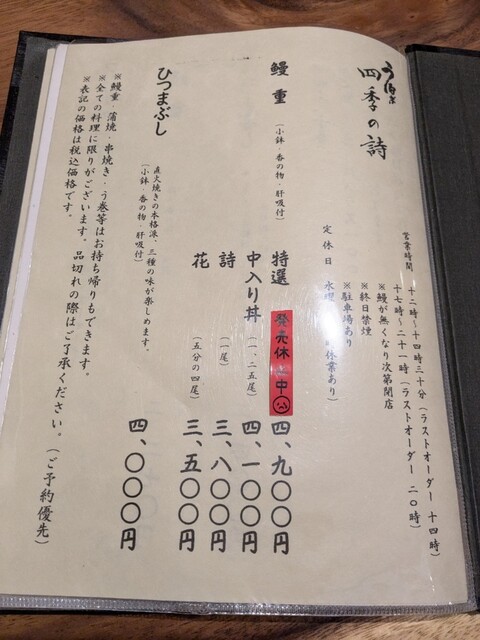 四季の詩
営業時間 十二時~十四時三十分(ラストオーダー 十四時)
十七時~二十一時(ラストオーダー 二〇時)
※鰻が無くなり次第閉店
※終日禁煙
※駐車場あり
定休日 水曜
休業あり)
鰻重(小鉢・香の物・肝吸付)
特選 発売休止中 四、九〇〇円
中入り丼(一、二五尾) 四、一〇〇円
詩(一尾) 三、八〇〇円
花(五分の四尾) 三、五〇〇円
ひつまぶし 四、〇〇〇円
直火焼きの本格派、三種の味が楽しめます。
(小鉢・香の物・肝吸付)
※鰻重・蒲焼・串焼き・う巻等はお持ち帰りもできます。
※全ての料理に限りがございます。品切れの際はご了承ください。(ご予約優先)
※表記の価格は税込価格です。